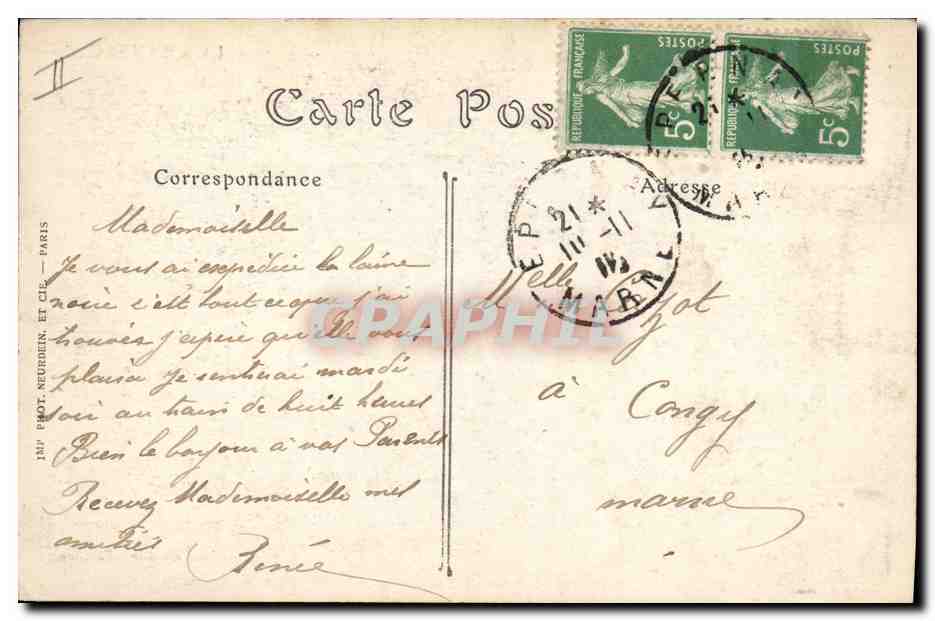 II
Carte Pos
RÉPUBLIQUE FRANÇAISE
POSTES
5c
RÉPUBLIQUE FRANÇAISE
POSTES
5c
PERNAY
21 *
MAR
Correspondance
Adresse
EPE
21 *
10 - 11
MARNE
Mademoiselle
Je vous ai expédiée la laine
noire c'est tout ce que j'ai
trouvée j'espère qu'elle vous
plaira Je rentrerai mardi
soir au train de huit heures
Bien le bonjour à vos Parents
Recevez Mademoiselle mes
amitiés
Renée
Melle Jot
à Congy
marne
IMP PHOT. NEURDEIN. ET CIE. — PARIS
CPAPHIL